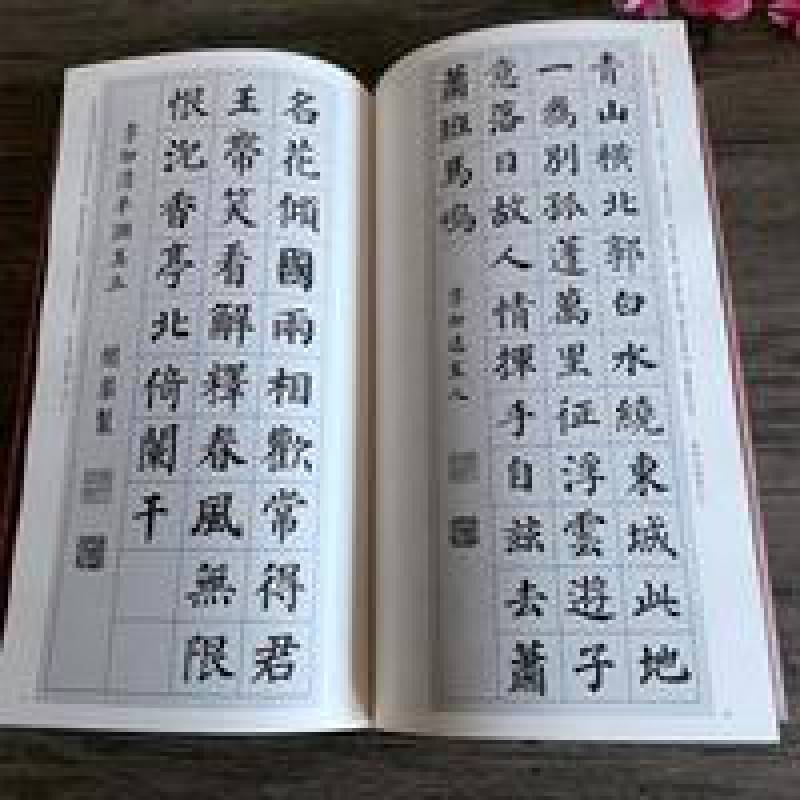 青山橫北郭白水繞東城此地
一為別孤蓬萬里征浮雲遊子
意落日故人情揮手自茲去蕭
蕭班馬鳴
李白送友人
名花傾國兩相歡常得君
王帶笑看解釋春風無限
恨沉香亭北倚闌干
李白清平調其三